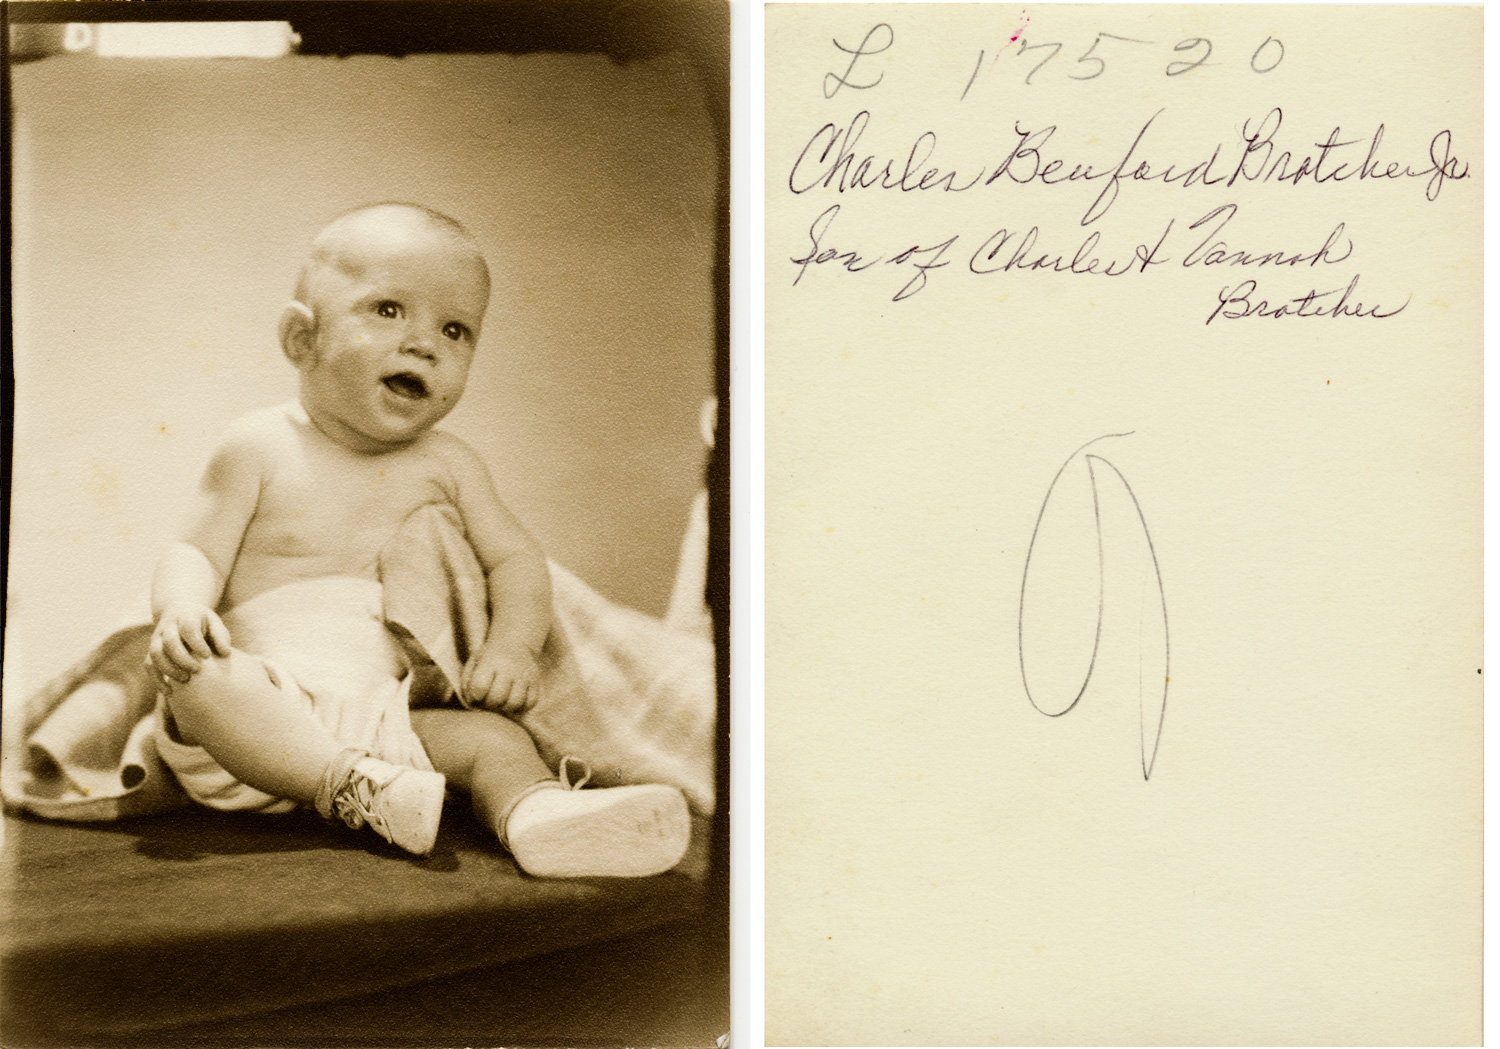 L 17520
Charles Beuford Bratcher Jr.
Son of Charles & Vannah
Bratcher